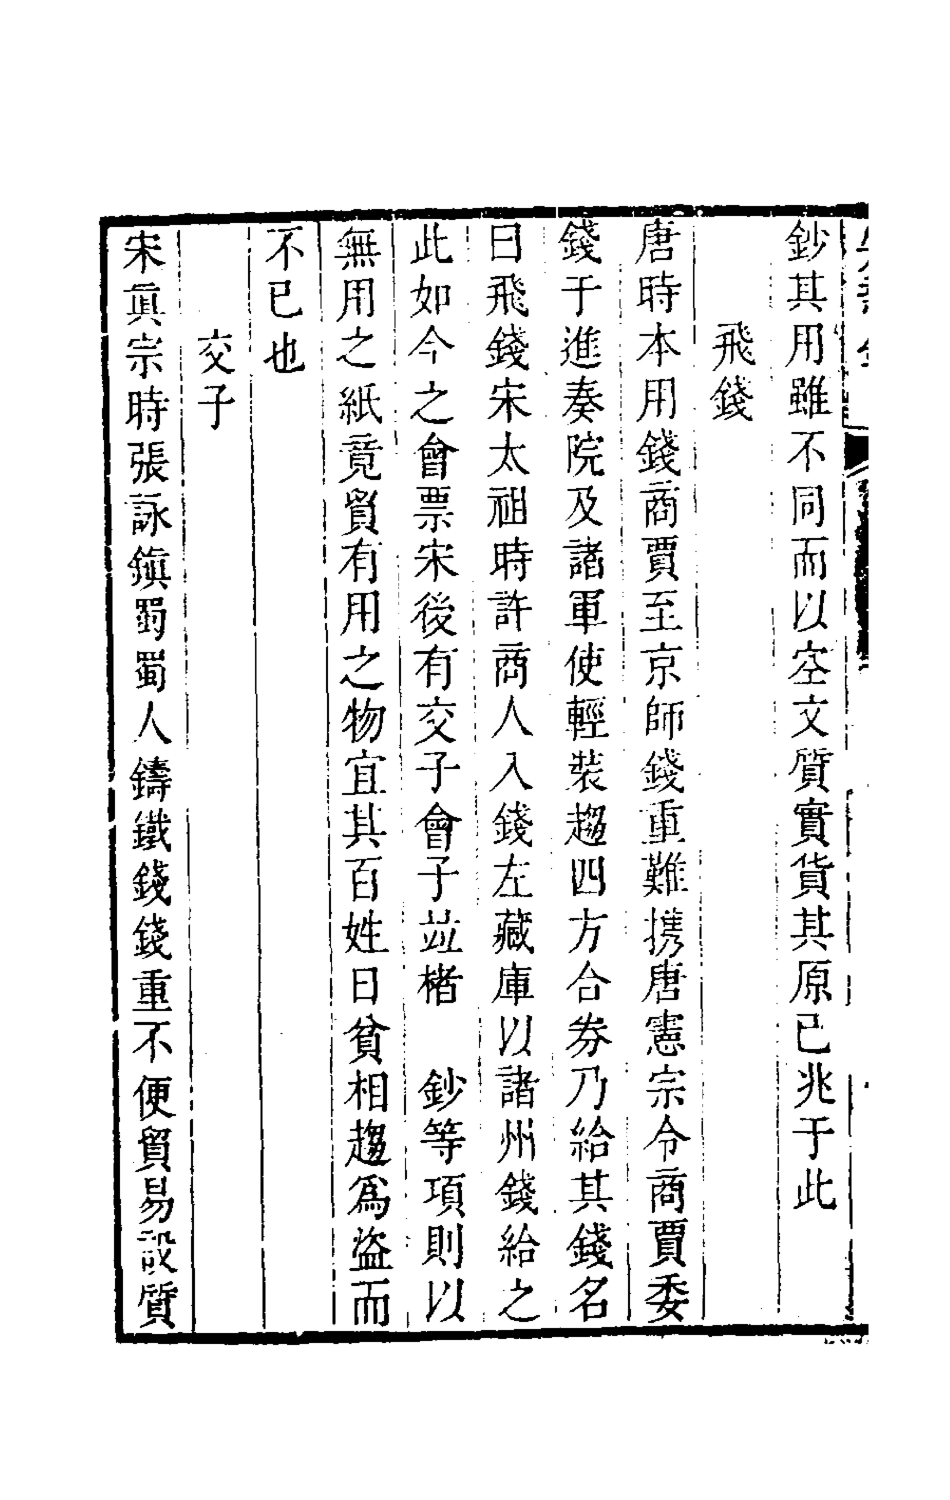 鈔其用雖不同而以空文質實貨其原已兆于此
飛錢
唐時本用錢商賈至京師錢重難携唐憲宗令商賈委
錢于進奏院及諸軍使輕裝趨四方合券乃給其錢名
曰飛錢宋太祖時許商人入錢左藏庫以諸州錢給之
此如今之會票宋後有交子會子並楮 鈔等項則以
無用之紙竟貿有用之物宜其百姓日貧相趨爲盜而
不已也
交子
宋眞宗時張詠鎭蜀蜀人鑄鐵錢錢重不便貿易設質